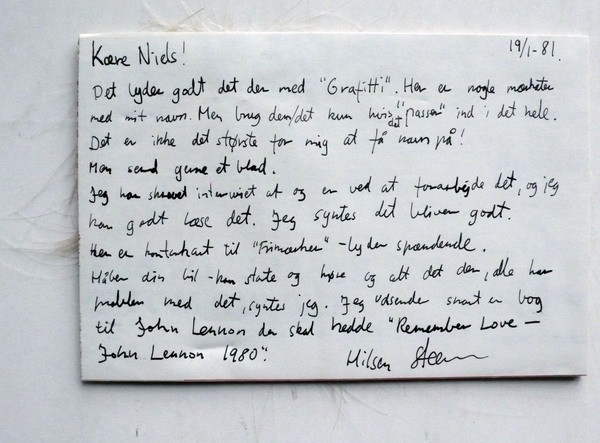 19/1-81.
Kære Niels!
Det lyder godt det der med "Grafitti". Her er nogle mærkater
med mit navn. Men brug dem/det kun hvis det "passer" ind i det hele.
Det er ikke det største for mig at få navn på!
Men send gerne et blad.
Jeg har skrevet interviewet af og er ved at forarbejde det, og jeg
kan godt læse det. Jeg syntes det bliver godt.
Her er kontaktkort til "Frimærker" - lyder spændende.
Håber din bil - kan starte og køre og alt det der, alle har
problem med det, syntes jeg. Jeg udsender snart en bog
til John Lennon der skal hedde "Remember Love —
John Lennon 1980".
Hilsen Steen